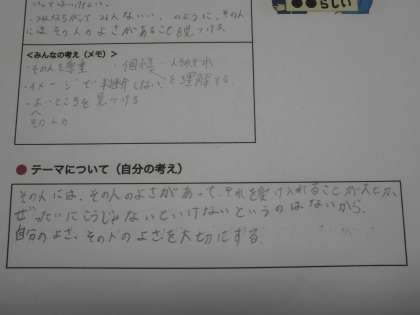 ●●らしい
・みんなちがってみんないい、のように、その人
には、その人のよさがあることを見つける。
<みんなの考え(メモ)>
・その人を尊重 ・個性
・イメージで判断しない を理解する
・よいところを見つける
その人の
● テーマについて(自分の考え)
その人には、その人のよさがあって、それを受け入れることが大切。
ぜったいにこうじゃないといけないというのはないから、
自分のよさ、その人のよさを大切にする。